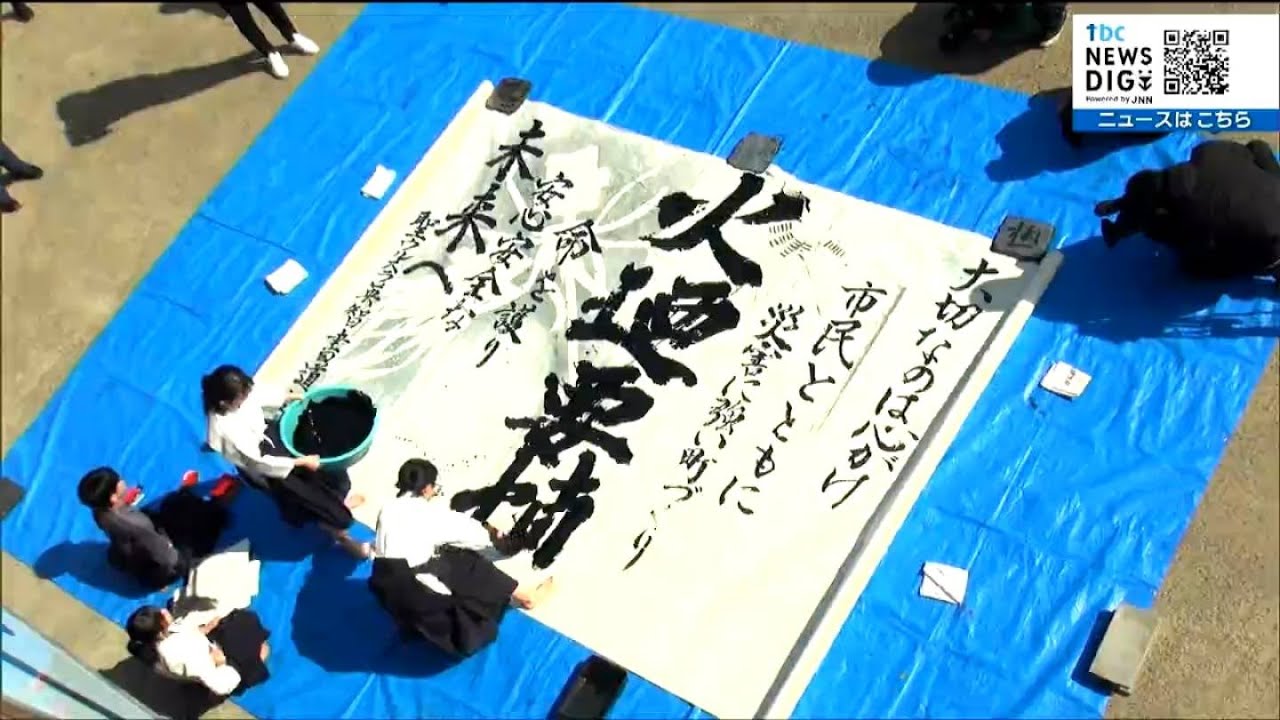 tbc
NEWS
DIG
Powered by JNN
ニュースはこちら
大切なのは心がけ
市民とともに
災害に強い町づくり
火地要慎
命を護り
安心安全な
未来へ